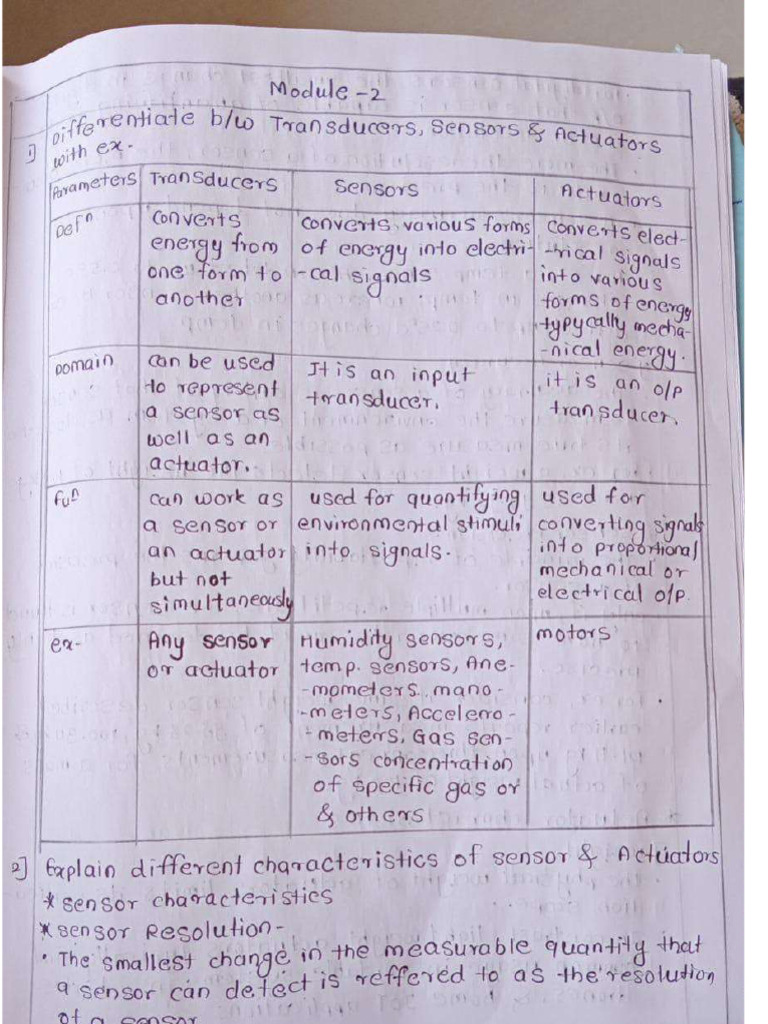 Module -2
1) Differentiate b/w Transducers, Sensors & Actuators
with ex-
Parameters | Transducers | Sensors | Actuators
Defn | converts | converts various forms | converts elect-
energy from | of energy into electri- | -rical signals
one form to | -cal signals | into various
another | forms of energy
typycally mecha-
-nical energy.
Domain | can be used | It is an input | it is an o/p
to represent | transducer. | transducer.
a sensor as
well as an
actuator.
fun | can work as | used for quantifying | used for
a sensor or | environmental stimuli | converting signals
an actuator | into signals. | into proportional
but not | mechanical or
simultaneously | electrical o/p.
ex- | Any sensor | Humidity sensors, | motors
or actuator | temp. sensors, Ane-
-mometers, mano-
-meters, Accelero-
-meters, Gas sen-
-sors concentration
of specific gas or
& others
2] Explain different characteristics of sensor & Actuators
* sensor characteristics
* sensor Resolution-
• The smallest change in the measurable quantity that
a sensor can detect is reffered to as the resolution
of a sensor